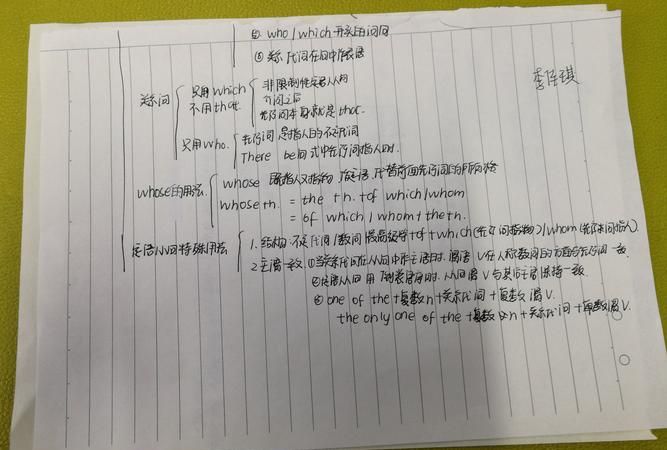 ④ who / which 开头的问句
⑤ 关系代词在从句中作表语
李佳琪
关系词
只用 which
不用 that
非限制性定语从句
介词之后
先行词本身就是 that.
只用 who.
先行词是指人的不定代词
There be 句式中先行词指人时.
whose 的用法
whose 既指人又指物 作定语, 代替前面先行词的所有格
whose + n. = the + n. + of which / whom
= of which / whom + the + n.
定语从句特殊用法
1. 结构: 不定代词 / 数词 最高级等 + of + which (先行词指物) / whom (先行词指人)
2. 主谓一致. ① 当关系代词在从句中作主语时. 谓语 V 在人称数词的方面与先行词一致.
② 定语从句用 倒装 时. 从句谓 V 与其后主语保持一致.
③ one of the + 复数 n + 关系代词 + 复数谓 V.
the only one of the + 复数 n + 关系代词 + 单数谓 V.